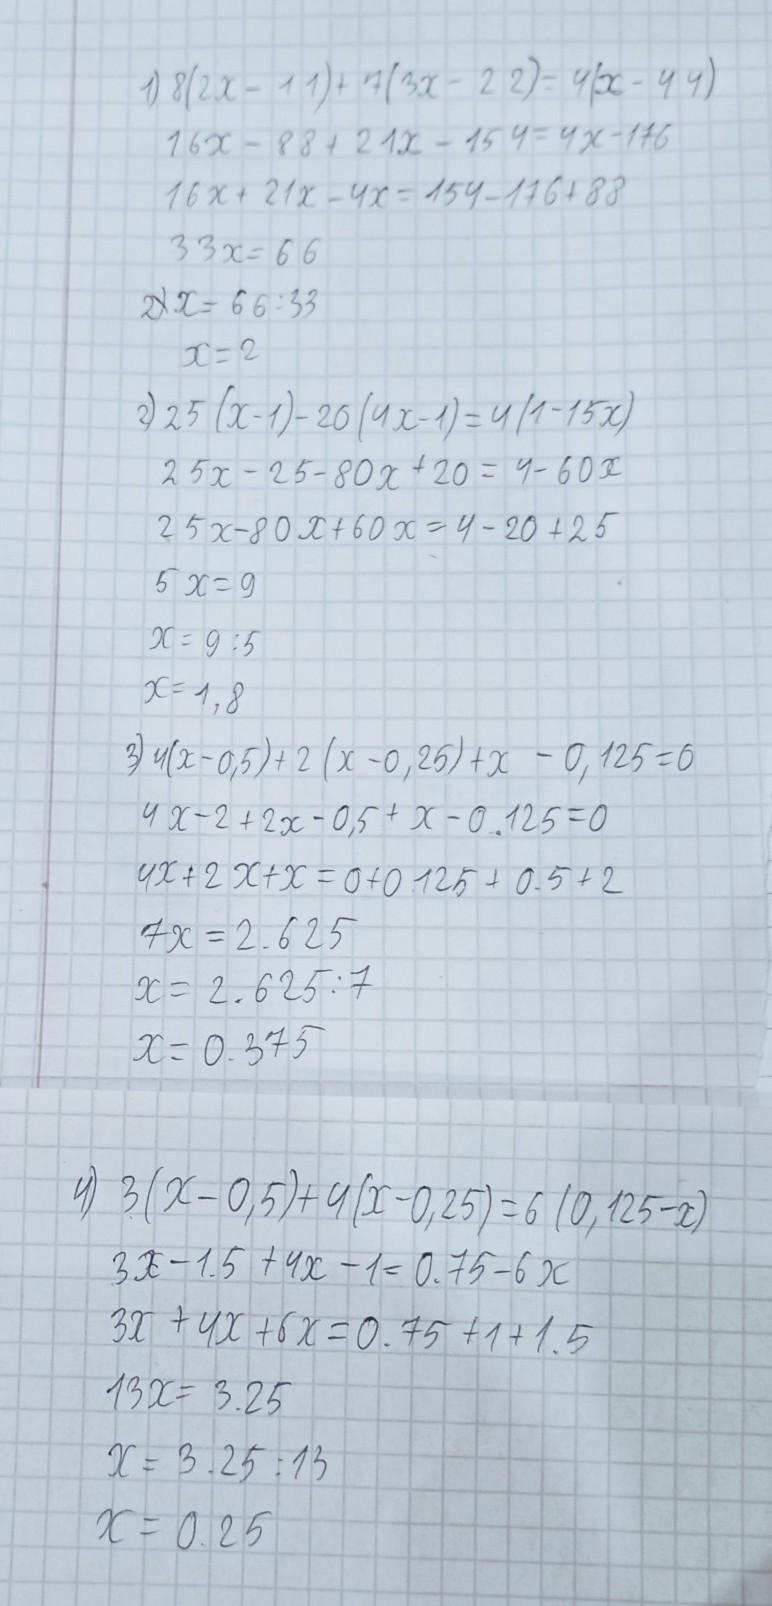 1) 8(2x - 11) + 7(3x - 22) = 4(x - 44)
16x - 88 + 21x - 154 = 4x - 176
16x + 21x - 4x = 154 - 176 + 88
33x = 66
x = 66:33
x = 2
2) 25(x-1) - 20(4x-1) = 4(1-15x)
25x - 25 - 80x + 20 = 4 - 60x
25x - 80x + 60x = 4 - 20 + 25
5x = 9
x = 9:5
x = 1,8
3) 4(x-0,5) + 2(x-0,25) + x - 0,125 = 0
4x - 2 + 2x - 0,5 + x - 0.125 = 0
4x + 2x + x = 0+0.125 + 0.5 + 2
7x = 2.625
x = 2.625:7
x = 0.375
4) 3(x-0,5) + 4(x-0,25) = 6(0,125-x)
3x - 1.5 + 4x - 1 = 0.75 - 6x
3x + 4x + 6x = 0.75 + 1 + 1.5
13x = 3.25
x = 3.25:13
x = 0.25